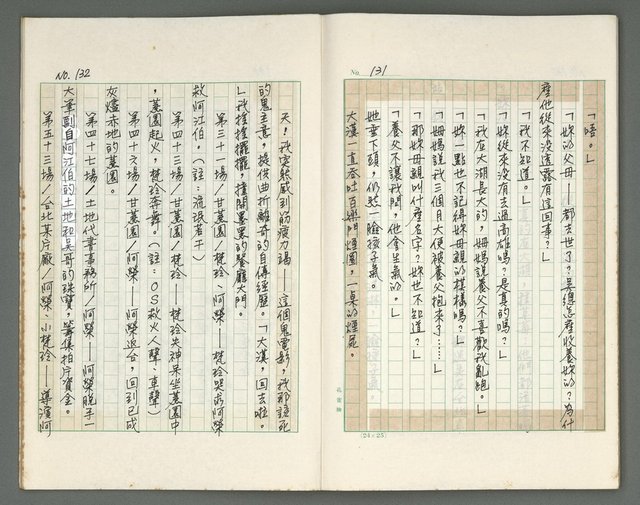 No. 131
「唔。」
「妳的父母——都去世了？吳總怎麼收養妳的？為什
麼他從來沒透露有這回事？」
「我不知道。」
「妳從來沒有去過高雄嗎？是真的嗎？」
「我在大湖長大的，姆媽說養父不喜歡我亂跑。」
「妳一點也不記得妳母親的模樣嗎？」
「姆媽說我三個月大便被養父抱來了……」
「那妳母親叫什麼名字？妳也不知道？」
「養父不讓我問，他會生氣的。」
她垂下頭，仍然一臉孩子氣。
大漢一直吞吐百樂門煙圈，一桌的煙屍。
(24×25)
No. 132
天！我突然感到筋疲力竭——這個鬼電影，我那該死
的鬼主意，提供曲折離奇的自傳經歷。「大漢，回去啦。
」我搖搖擺擺，撞開黑黑的餐廳大門。
第三十一場／甘蔗園／梵玲、阿榮——梵玲哭求阿榮
救阿江伯。（註：流氓若干）
第四十三場／甘蔗園／梵玲——梵玲失神呆坐蔗園中
，蔗園起火，梵玲奔舞。（註：OS救火人聲、車聲）
第四十六場／甘蔗園／阿榮——阿榮返台，回到已成
灰燼赤地的蔗園。
第四十七場／土地代書事務所／阿榮——阿榮脫手一
大筆劃自阿江伯的土地和吳哥的珠寶，籌集拍片資金。
第五十三場／台北某片廠／阿榮、小梵玲——導演阿